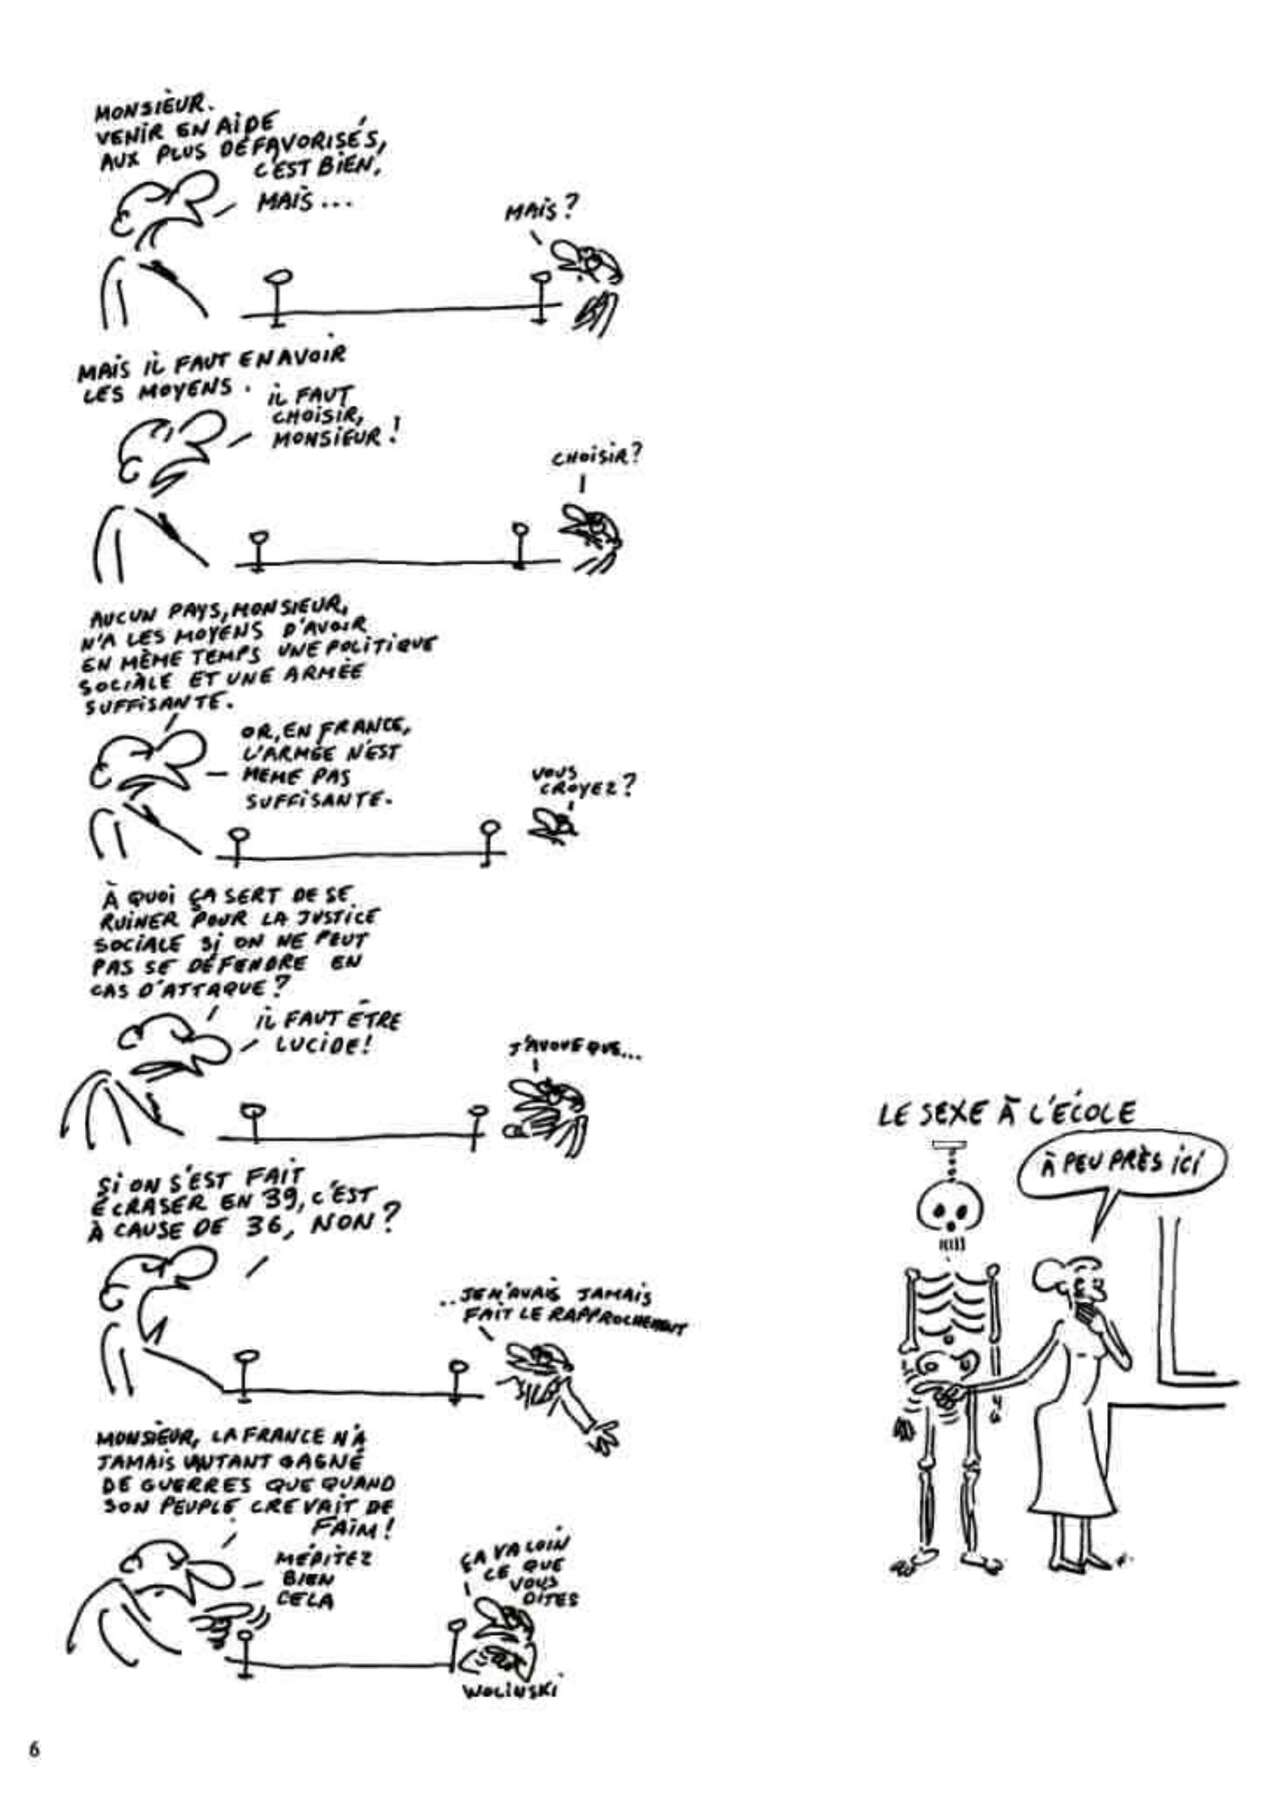 MONSIEUR.
VENIR EN AIDE
AUX PLUS DÉFAVORISÉS,
C'EST BIEN,
MAIS...
MAIS?
MAIS IL FAUT EN AVOIR
LES MOYENS.
IL FAUT
CHOISIR,
MONSIEUR!
CHOISIR?
AUCUN PAYS, MONSIEUR,
N'A LES MOYENS D'AVOIR
EN MÊME TEMPS UNE POLITIQUE
SOCIALE ET UNE ARMÉE
SUFFISANTE.
OR, EN FRANCE,
L'ARMÉE N'EST
MÊME PAS
SUFFISANTE.
VOUS
CROYEZ?
À QUOI ÇA SERT DE SE
RUINER POUR LA JUSTICE
SOCIALE SI ON NE PEUT
PAS SE DÉFENDRE EN
CAS D'ATTAQUE?
IL FAUT ÊTRE
LUCIDE!
J'AVOUE QUE...
SI ON S'EST FAIT
ÉCRASER EN 39, C'EST
À CAUSE DE 36, NON?
..JE N'AVAIS JAMAIS
FAIT LE RAPPROCHEMENT
MONSIEUR, LA FRANCE N'A
JAMAIS AUTANT GAGNÉ
DE GUERRES QUE QUAND
SON PEUPLE CREVAIT DE
FAIM!
MÉDITEZ
BIEN
CELA
ÇA VA LOIN
CE QUE
VOUS
DITES
WOLINSKI
LE SEXE À L'ÉCOLE
À PEU PRÈS ICI
6